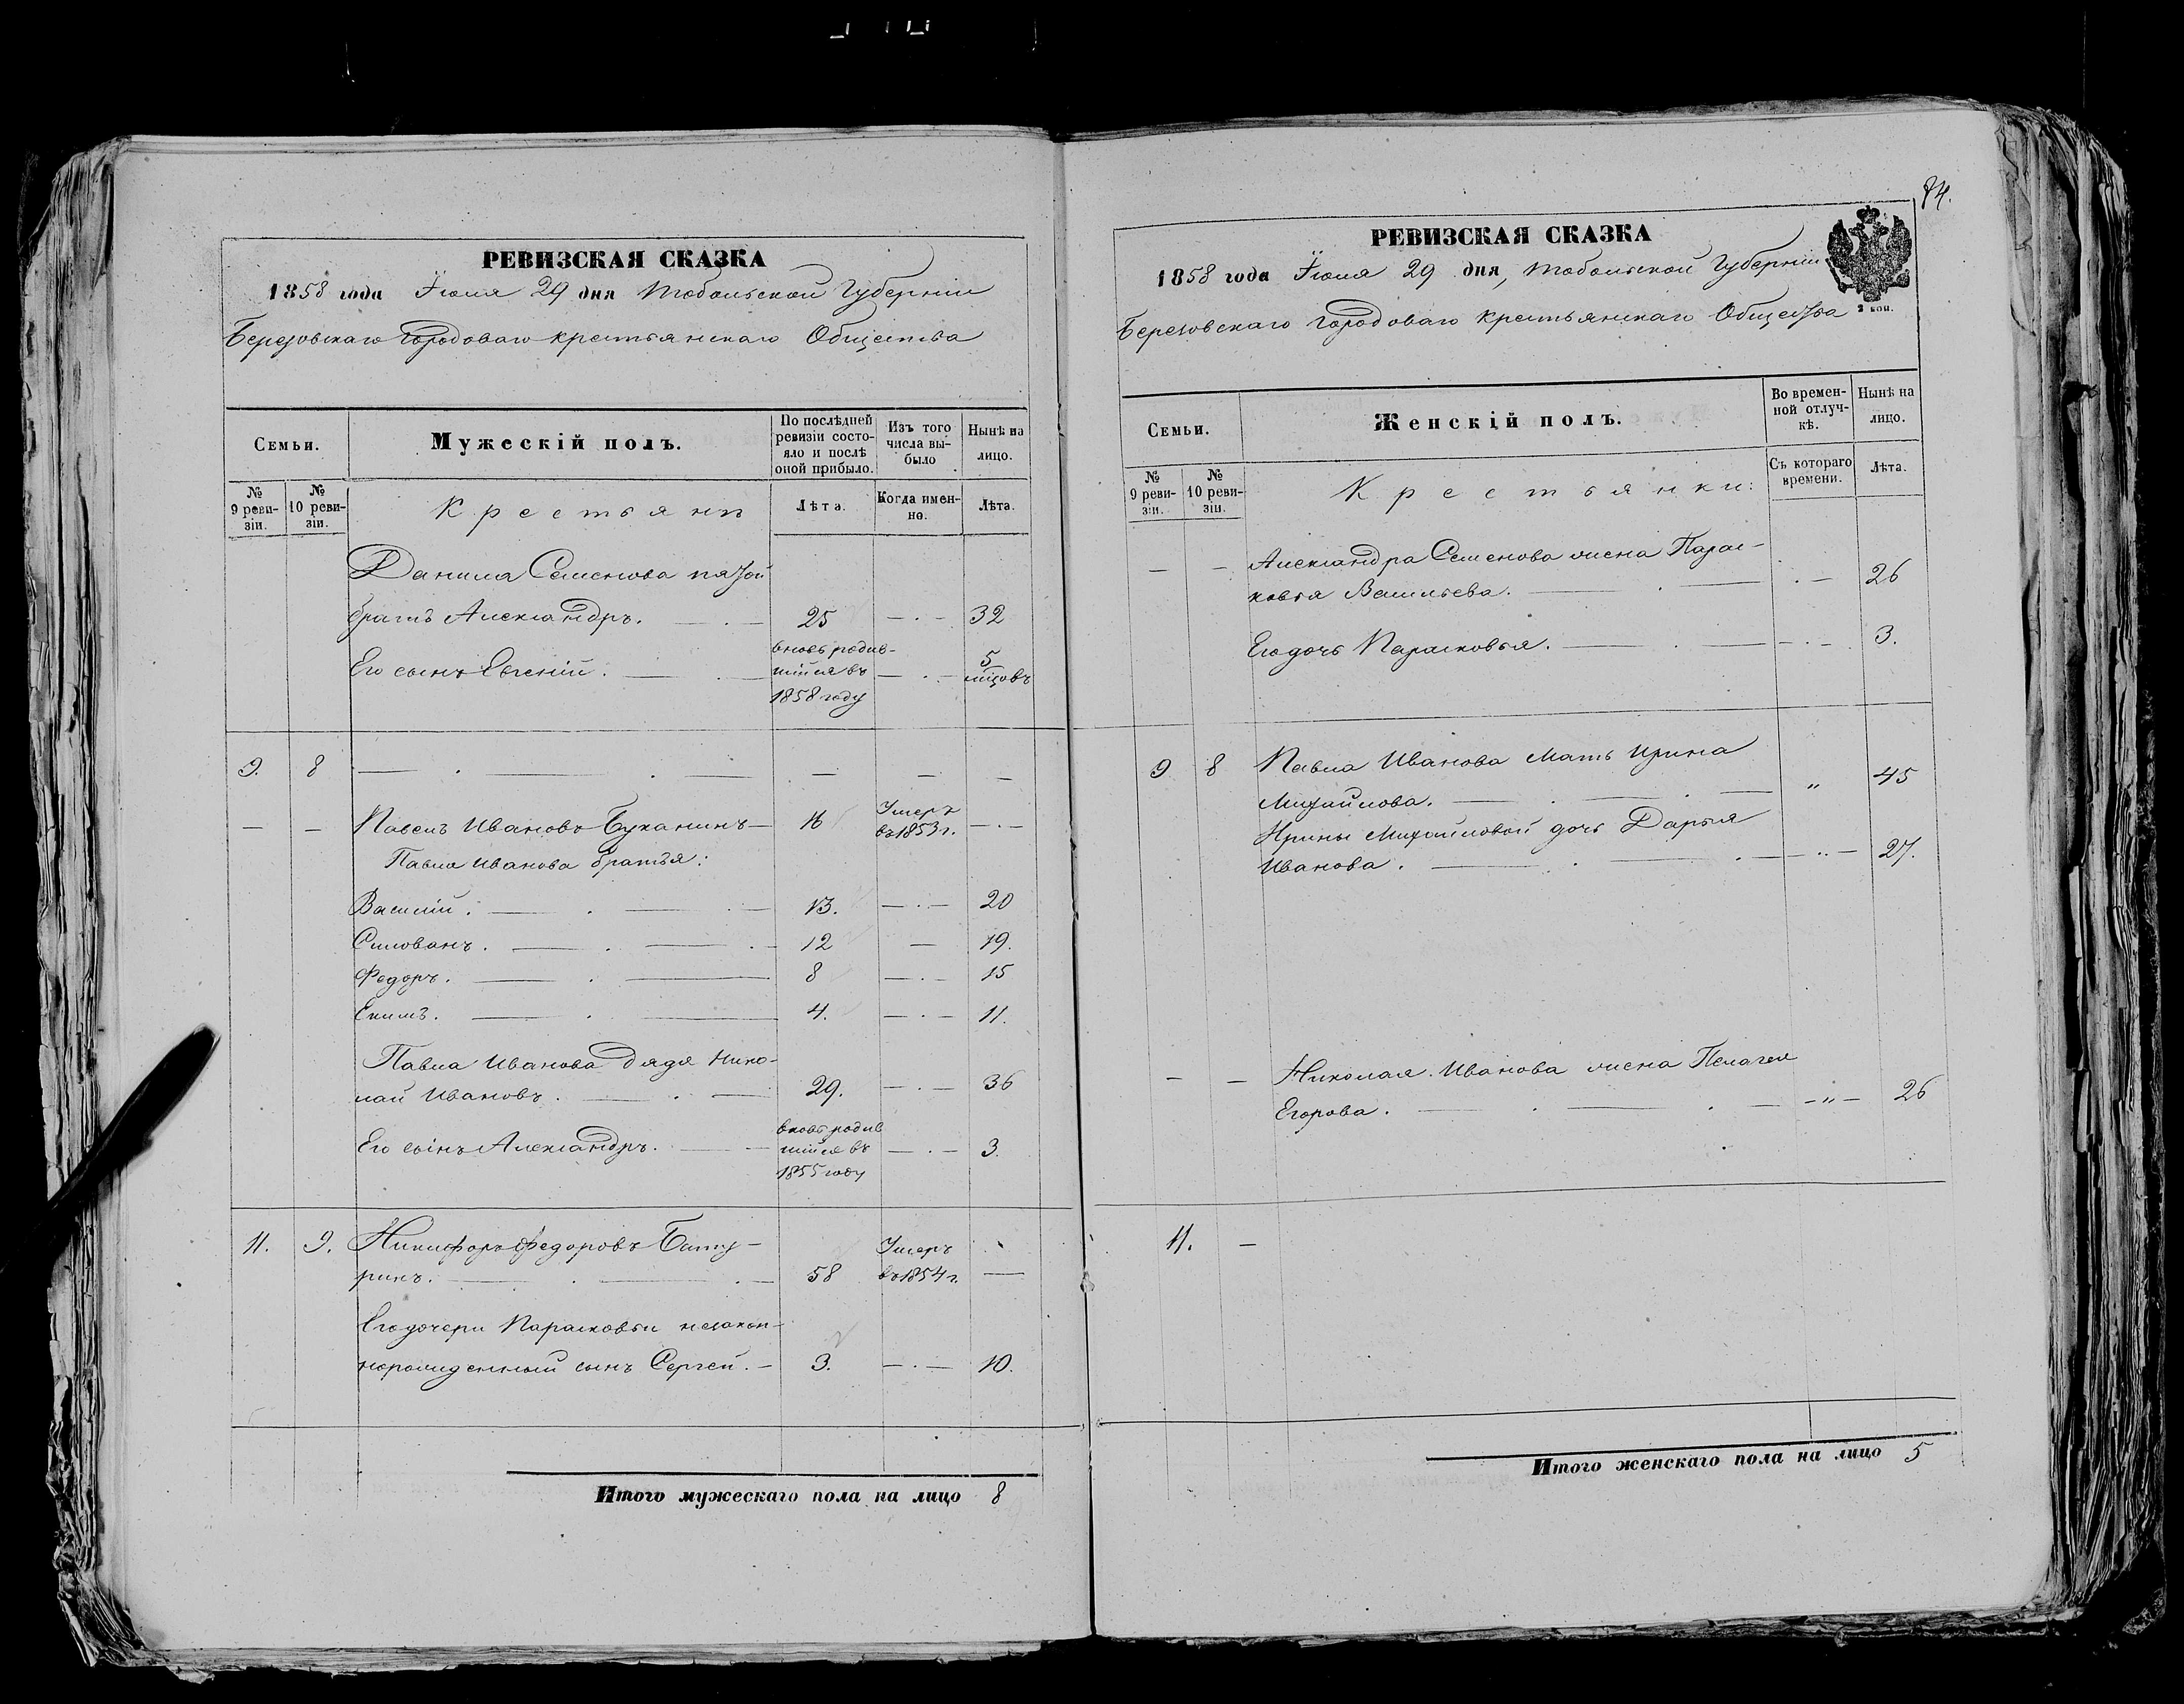 РЕВИЗСКАЯ СКАЗКА
1858 года Іюля 29 дня Тобольской Губерніи
Березовскаго городоваго крестьянскаго Общества
Семьи.
Мужескій полъ.
По послѣдней ревизіи состояло и послѣ оной прибыло.
Изъ того числа выбыло
Нынѣ на лицо.
№ 9 ревизіи.
№ 10 ревизіи.
Крестьянъ
Лѣта.
Когда именно.
Лѣта.
Данила Семенова пятой
братъ Александръ. 25 — 32
Его сынъ Евгеній. вновь родившійся въ 1858 году — 5 мцовъ
9. 8 — — — —
— — Павелъ Ивановъ Буканинъ — 16 Умеръ въ 1853 г. —
Павла Иванова братья:
Василій. 13. — 20
Силованъ. 12 — 19.
Федоръ. 8 — 15
Екимъ. 4. — 11.
Павла Иванова дядя Нико-
лай Ивановъ. 29. — 36
Его сынъ Александръ. вновь родившійся въ 1855 году — 3.
11. 9. Никифоръ Федоровъ Бату-
ринъ. 58 Умеръ въ 1854 г. —
Его дочери Парасковьи незакон-
норожденный сынъ Сергей. — 3. — 10.
Итого мужескаго пола на лицо 8
84.
РЕВИЗСКАЯ СКАЗКА
1858 года Іюля 29 дня, Тобольской Губерніи
Березовскаго городоваго крестьянскаго Общества
2 коп.
Семьи.
Женскій полъ.
Во временной отлучкѣ.
Нынѣ на лицо.
№ 9 ревизіи.
№ 10 ревизіи.
Крестьянки:
Съ котораго времени.
Лѣта.
— — Александра Семенова жена Парас-
ковья Васильева. — 26
Его дочь Парасковья. — 3.
9 8 Павла Иванова Мать Ирина
Михайлова. — „ 45
Ирины Михайловой дочь Дарья
Иванова. — „ — 27.
— — Николая Иванова жена Пелагея
Егорова. — „ — 26
11. —
Итого женскаго пола на лицо 5